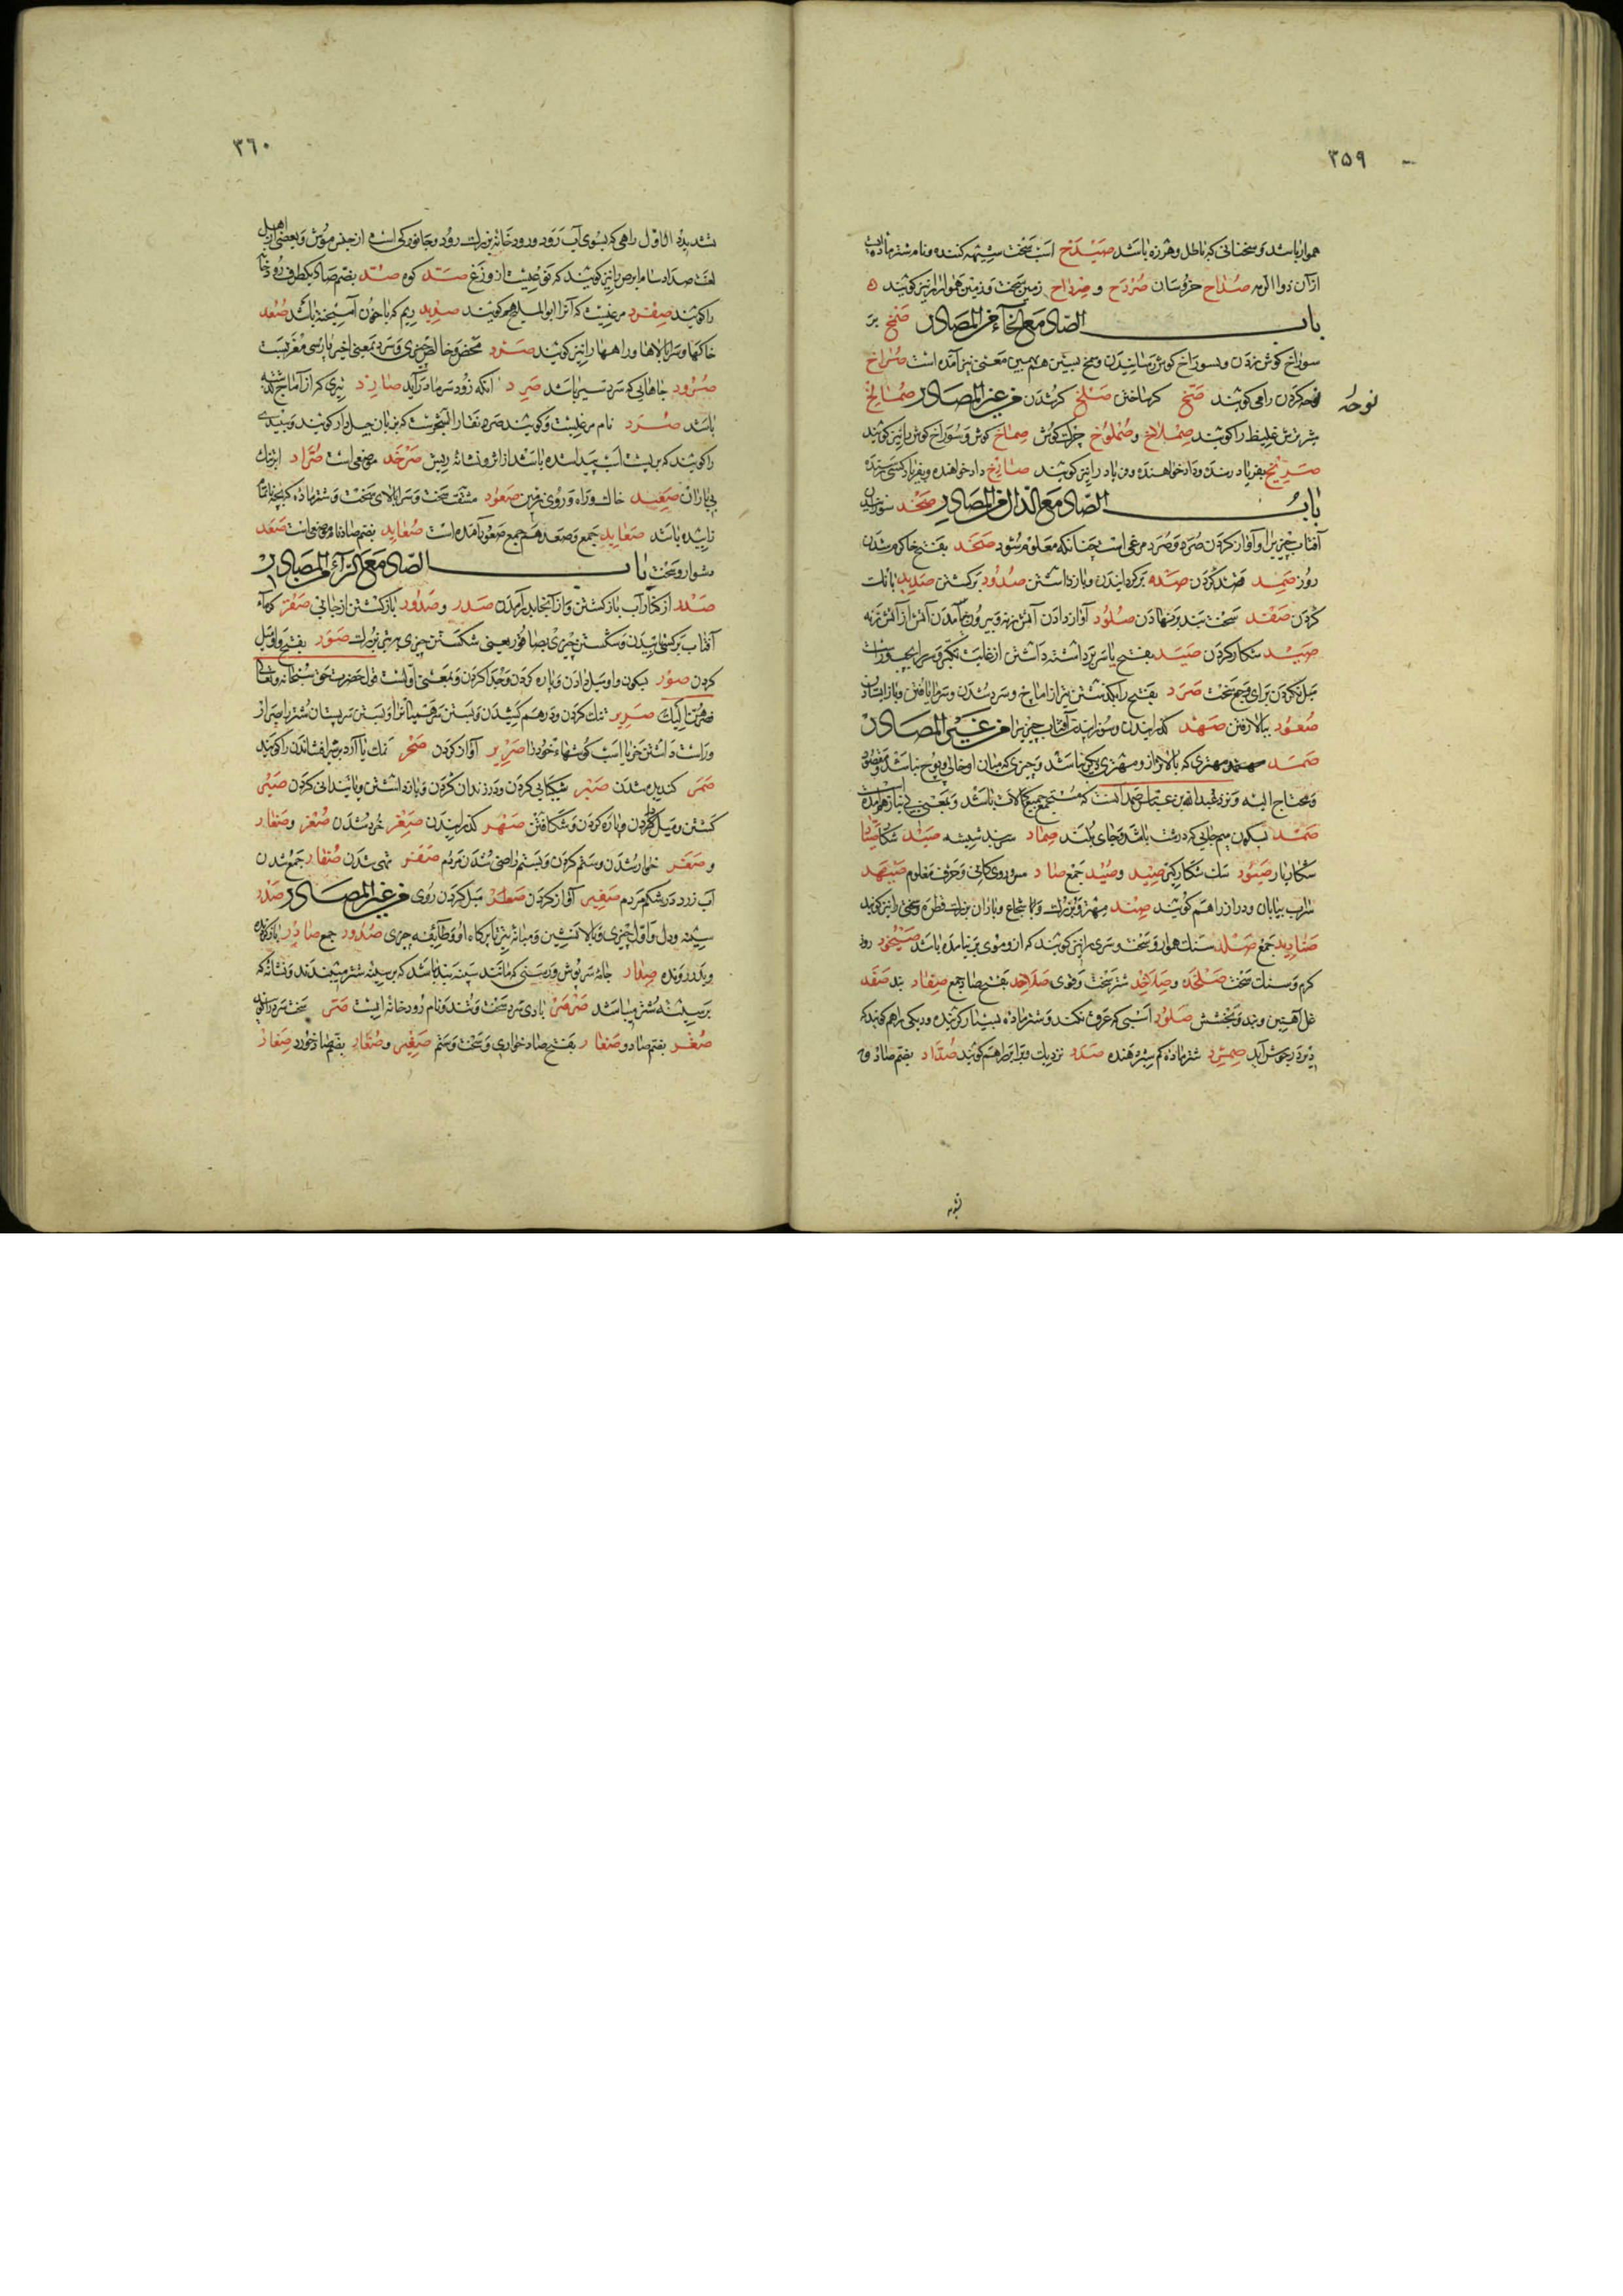 ۳۵۹
هموار باشد و سخنانی که باطل و هرزه باشد صیدح اسب سخت شیهه کننده و نام شتر ماده
از آن ذوالرمه صداح خروسان صردح و صرداح زمین سخت و زمین هموار را نیز کویند
باب الصاد مع الخاء من المصادر صخ بر
سوراخ کوش زدن و بسوراخ کوش رسانیدن و میخ بستن هم بمین معنی نیز آمده است صراخ
نوحه کردن را می کویند صخ کر ساختن صلخ کر شدن من غیر المصادر صمالخ
شیر ترش غلیظ را کویند صملاخ و صملوخ چرک کوش صماخ کوش و سوراخ کوش را نیز کویند
نوحه
صریخ بفریاد رسنده و داد خواهنده و فریاد را نیز کویند صارخ داد خواهنده و بفریاد کسی رسنده
باب الصاد مع الدال من المصادر صخد سوزانیدن
آفتاب چیزیرا و آواز کردن صرد و صرد مرغی است چنانکه معلوم شود صخد بفتح خا کرم شدن
روز صمد قصد کردن صد بر کردانیدن و باز داشتن صدود بر کشتن صدید بانک
کردن صفد سخت بند بر نهادن صلود آواز دادن آتش زنه و بیرون نیامدن آتش از آتش زنه
صید شکار کردن صید بفتح یا سر برداشته داشتن از غایت تکبر و سر
صرد بفتح را بکذشتن تیر از اماج و سرد شدن و سرما یافتن و باز ایستادن
صعود ببالا رفتن صهد کدازانیدن و سوزانیدن آفتاب چیزیرا من غیر المصادر
صمد مهتری که بالاتر از و مهتری دیکر نباشد و چیزی که میان او خالی و پوچ نباشد و مقصود
و محتاج الیه و نزد عبد الله بن عباس صمد آنست که مستجمع جمیع کمالات باشد و بمعنی بی نیاز هم آمده
صمد بسکون میم جایی که درشت باشد و جای بلند صماد سر بند شیشه صید شکار صیاد
شکار یار صیود سک شکار کیر صید و صید جمع صاد مس روی کاری و حرف معلوم صیهد
سراب بیابان و دراز را هم کویند صندد مهتر و بزرک و شجاع و باران بزرک قطره و سختی را نیز کویند
صنادید جمع صلد سنک هموار و سخت و سری را نیز کویند که ازو موی بر نیامده باشد صیخود روز
کرم و سنک سخت صلخد و صلاخد شتر سخت و قوی صلاخد بفتح صاد جمع صفاد بند صفد
غل آهنین و بند و بخشش صلود اسبی که عرق نکند و شتر ماده بسیار کوینده و دیکی را هم کویند که
دیر در جوش آید صمرد شتر ماده کم شیر دهنده صدد نزدیک و برابر را هم کویند صداد بضم صاد و
۳۶۰
تشدید دال اول راهی که بسوی آب رود و رود خانه بزرک رود و جانورکی است از جنس موش و بعضی از اهل
لغت صداد سام ابرص را نیز کویند که نوعیست از وزغ صد کوه صد بضم صاد یکطرف رود خانه
را کویند صفرد مرغیست که آنرا ابو الملیح هم کویند صدید ریم که با خون آمیخته باشد صعد
خاکها و سر بالاها و راهها را نیز کویند صرد محض و خالص چیزی و سرد بمعنی اخیر پارسی معربست
صرود جاهایی که سرد سیر باشد صرد آنکه زود سرما درآید صارد تیری که از آماج کذشته
باشد صرد نام مرغیست و کویند صرد نقار النخلست که بزبان جیل دار کویند و سپیدی
را کویند که بر پشت اسب پیدا شده باشد از اثر و نشانه ریش صرخد موضعی است صراد ابر تنک
بی باران صعید خاک و راه و روی زمین صعود مشقت سخت و سر بالای سخت و شتر ماده که بچه ناتمام
زاییده باشد صعاید جمع و صعد هم جمع صعود آمده است صعاید بضم صاد نام موضعی است صعد
دشوار و سخت باب الصاد مع الراء من المصادر
صدر از کنار آب باز کشتن و از آنجا بدر آمدن صدر و صدور باز کشتن از جایی صقر کرماء
آفتاب بر کسی تابیدن و شکستن چیزی بصاقور یعنی شکستن چیزی بتبر بزرک صور بفتح واو میل
کردن صور بسکون واو میل دادن و پاره کردن و جدا کردن و بمعنی اولست قول حضرت حق سبحانه و تعالی
فصرهن الیک صریر تنک کردن و درهم کشیدن و بستن سر همیان را و بستن سر پستان شتر را بصرار
و راست داشتن خر یا اسب کوشهاء خود را صریر آواز کردن صخر نمک یا آرد بر شیر افشاندن را کویند
صمر کندیده شدن صبر شکیبایی کردن و در زندان کردن و باز داشتن و پایندانی کردن صیر
کشتن و میل کردن و پاره کردن و شکافتن صهر کدازانیدن صغر خرد شدن صغر و صغار
و صغر خوار شدن و ستم کردن و بستم راضی شدن مردم صفر تهی شدن صفار جمع شدن
آب زرد در شکم مردم صفیر آواز کردن صعر میل کردن روی من غیر المصادر صدر
سینه و دل و اول چیزی و بالا نشین و میانه تیر تا پرکاه او و طایفه چیزی صدور جمع صادر باز کردنده
و بدر رونده صدار جامه سر پوش و رسنی که مانند سینه بند باشد که بر سینه شتر میبندند و نشانه که
بر سینه شتر میباشد صرصر بادی سرد سخت و تند و نام رود خانه ایست صر سخت سرد
صغر بضم صاد و صغار بفتح صاد خواری و سخت و ستم صغیر و صغار بضم صاد خورد صغار